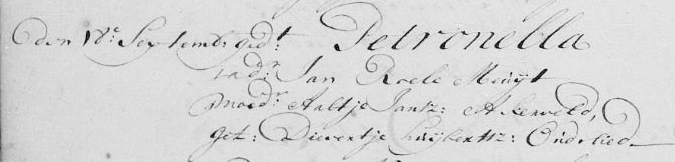 den 18e Septemb: ged:t Petronella
vad:r Jan Roele Meuijt
moed:r Aaltje Jantz: Akerveld,
get: Dievertje Huijbertsz: Ouderlied